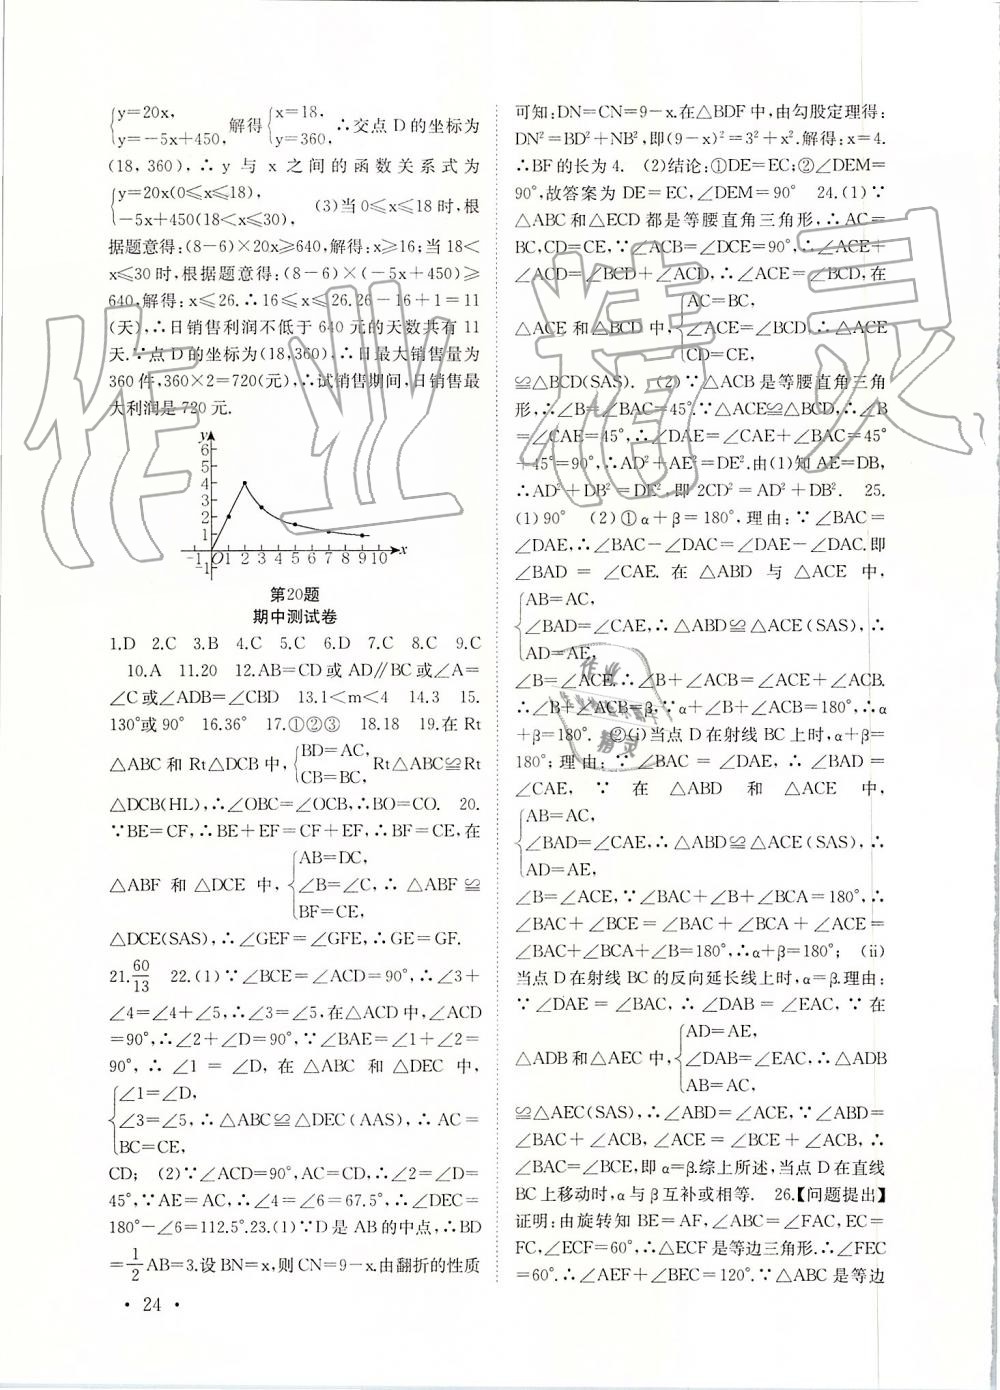 {y=20x, y=-5x+450, 解得{x=18, y=360, ∴交点 D 的坐标为
(18,360),∴y 与 x 之间的函数关系式为
{y=20x(0≤x≤18), -5x+450(18<x≤30), (3)当 0≤x≤18 时,根
据题意得:(8-6)×20x≥640,解得:x≥16;当 18<
x≤30 时,根据题意得:(8-6)×(-5x+450)≥
640,解得:x≤26.∴16≤x≤26.26-16+1=11
(天),∴日销售利润不低于 640 元的天数共有 11
天.∵点 D 的坐标为(18,360),∴日最大销售量为
360 件,360×2=720(元),∴试销售期间,日销售最
大利润是 720 元.
y
6
5
4
3
2
1
-1 O 1 2 3 4 5 6 7 8 9 10 x
-1
第20题
期中测试卷
1.D 2.C 3.B 4.C 5.C 6.D 7.C 8.C 9.C
10.A 11.20 12.AB=CD或 AD∥BC或∠A=
∠C或∠ADB=∠CBD 13.1<m<4 14.3 15.
130°或 90° 16.36° 17.①②③ 18.18 19.在 Rt
△ABC 和 Rt△DCB 中,{BD=AC, CB=BC, Rt△ABC≌Rt
△DCB(HL),∴∠OBC=∠OCB,∴BO=CO. 20.
∵BE=CF,∴BE+EF=CF+EF,∴BF=CE,在
△ABF 和 △DCE 中,{AB=DC, ∠B=∠C, BF=CE, ∴ △ABF ≌
△DCE(SAS),∴∠GEF=∠GFE,∴GE=GF.
21.60/13 22.(1)∵∠BCE=∠ACD=90°,∴∠3+
∠4=∠4+∠5,∴∠3=∠5,在△ACD中,∠ACD
=90°,∴∠2+∠D=90°,∵∠BAE=∠1+∠2=
90°,∴ ∠1 = ∠D, 在 △ABC 和 △DEC 中,
{∠1=∠D, ∠3=∠5, BC=CE, ∴△ABC≌△DEC(AAS),∴AC=
CD; (2)∵∠ACD=90°,AC=CD,∴∠2=∠D=
45°,∵AE=AC,∴∠4=∠6=67.5°,∴∠DEC=
180°-∠6=112.5°.23.(1)∵D 是 AB 的中点,∴BD
=1/2AB=3.设 BN=x,则 CN=9-x.由翻折的性质
• 24 •
可知:DN=CN=9-x.在△BDF 中,由勾股定理得:
DN²=BD²+NB²,即(9-x)²=3²+x².解得:x=4.
∴BF的长为 4. (2)结论:①DE=EC;②∠DEM=
90°,故答案为 DE=EC,∠DEM=90° 24.(1)∵
△ABC和△ECD 都是等腰直角三角形,∴AC=
BC,CD=CE,∵∠ACB=∠DCE=90°,∴∠ACE+
∠ACD=∠BCD+∠ACD,∴∠ACE=∠BCD,在
△ACE 和△BCD 中,{AC=BC, ∠ACE=∠BCD, CD=CE, ∴△ACE
≌△BCD(SAS). (2)∵△ACB是等腰直角三角
形,∴∠B=∠BAC=45°.∵△ACE≌△BCD,∴∠B
=∠CAE=45°,∴∠DAE=∠CAE+∠BAC=45°
+45°=90°,∴AD²+AE²=DE².由(1)知AE=DB,
∴AD²+DB²=DE²,即 2CD²=AD²+DB². 25.
(1)90° (2)①α+β=180°,理由:∵∠BAC=
∠DAE,∴∠BAC-∠DAC=∠DAE-∠DAC.即
∠BAD = ∠CAE. 在 △ABD 与 △ACE 中,
{AB=AC, ∠BAD=∠CAE, AD=AE, ∴△ABD≌△ACE(SAS),∴
∠B=∠ACE.∴∠B+∠ACB=∠ACE+∠ACB.
∴∠B+∠ACB=β,∵α+∠B+∠ACB=180°,∴α
+β=180°. ②(i)当点 D在射线 BC上时,α+β=
180°;理由:∵∠BAC = ∠DAE,∴∠BAD =
∠CAE, ∵ 在 △ABD 和 △ACE 中,
{AB=AC, ∠BAD=∠CAE, AD=AE, ∴△ABD≌△ACE(SAS),∴
∠B=∠ACE,∵∠BAC+∠B+∠BCA=180°,∴
∠BAC+∠BCE = ∠BAC + ∠BCA + ∠ACE =
∠BAC+∠BCA+∠B=180°,∴α+β=180°; (ii)
当点 D 在射线 BC 的反向延长线上时,α=β.理由:
∵∠DAE = ∠BAC,∴∠DAB = ∠EAC,∵ 在
△ADB 和△AEC 中,{AD=AE, ∠DAB=∠EAC, AB=AC, ∴△ADB
≌△AEC(SAS),∴∠ABD=∠ACE,∵∠ABD=
∠BAC + ∠ACB,∠ACE = ∠BCE + ∠ACB,∴
∠BAC=∠BCE,即 α=β.综上所述,当点 D在直线
BC上移动时,α与 β互补或相等. 26.【问题提出】
证明:由旋转知 BE=AF,∠ABC=∠FAC,EC=
FC,∠ECF=60°,∴△ECF 是等边三角形.∴∠FEC
=60°.∴∠AEF+∠BEC=120°.∵△ABC 是等边
作业精灵